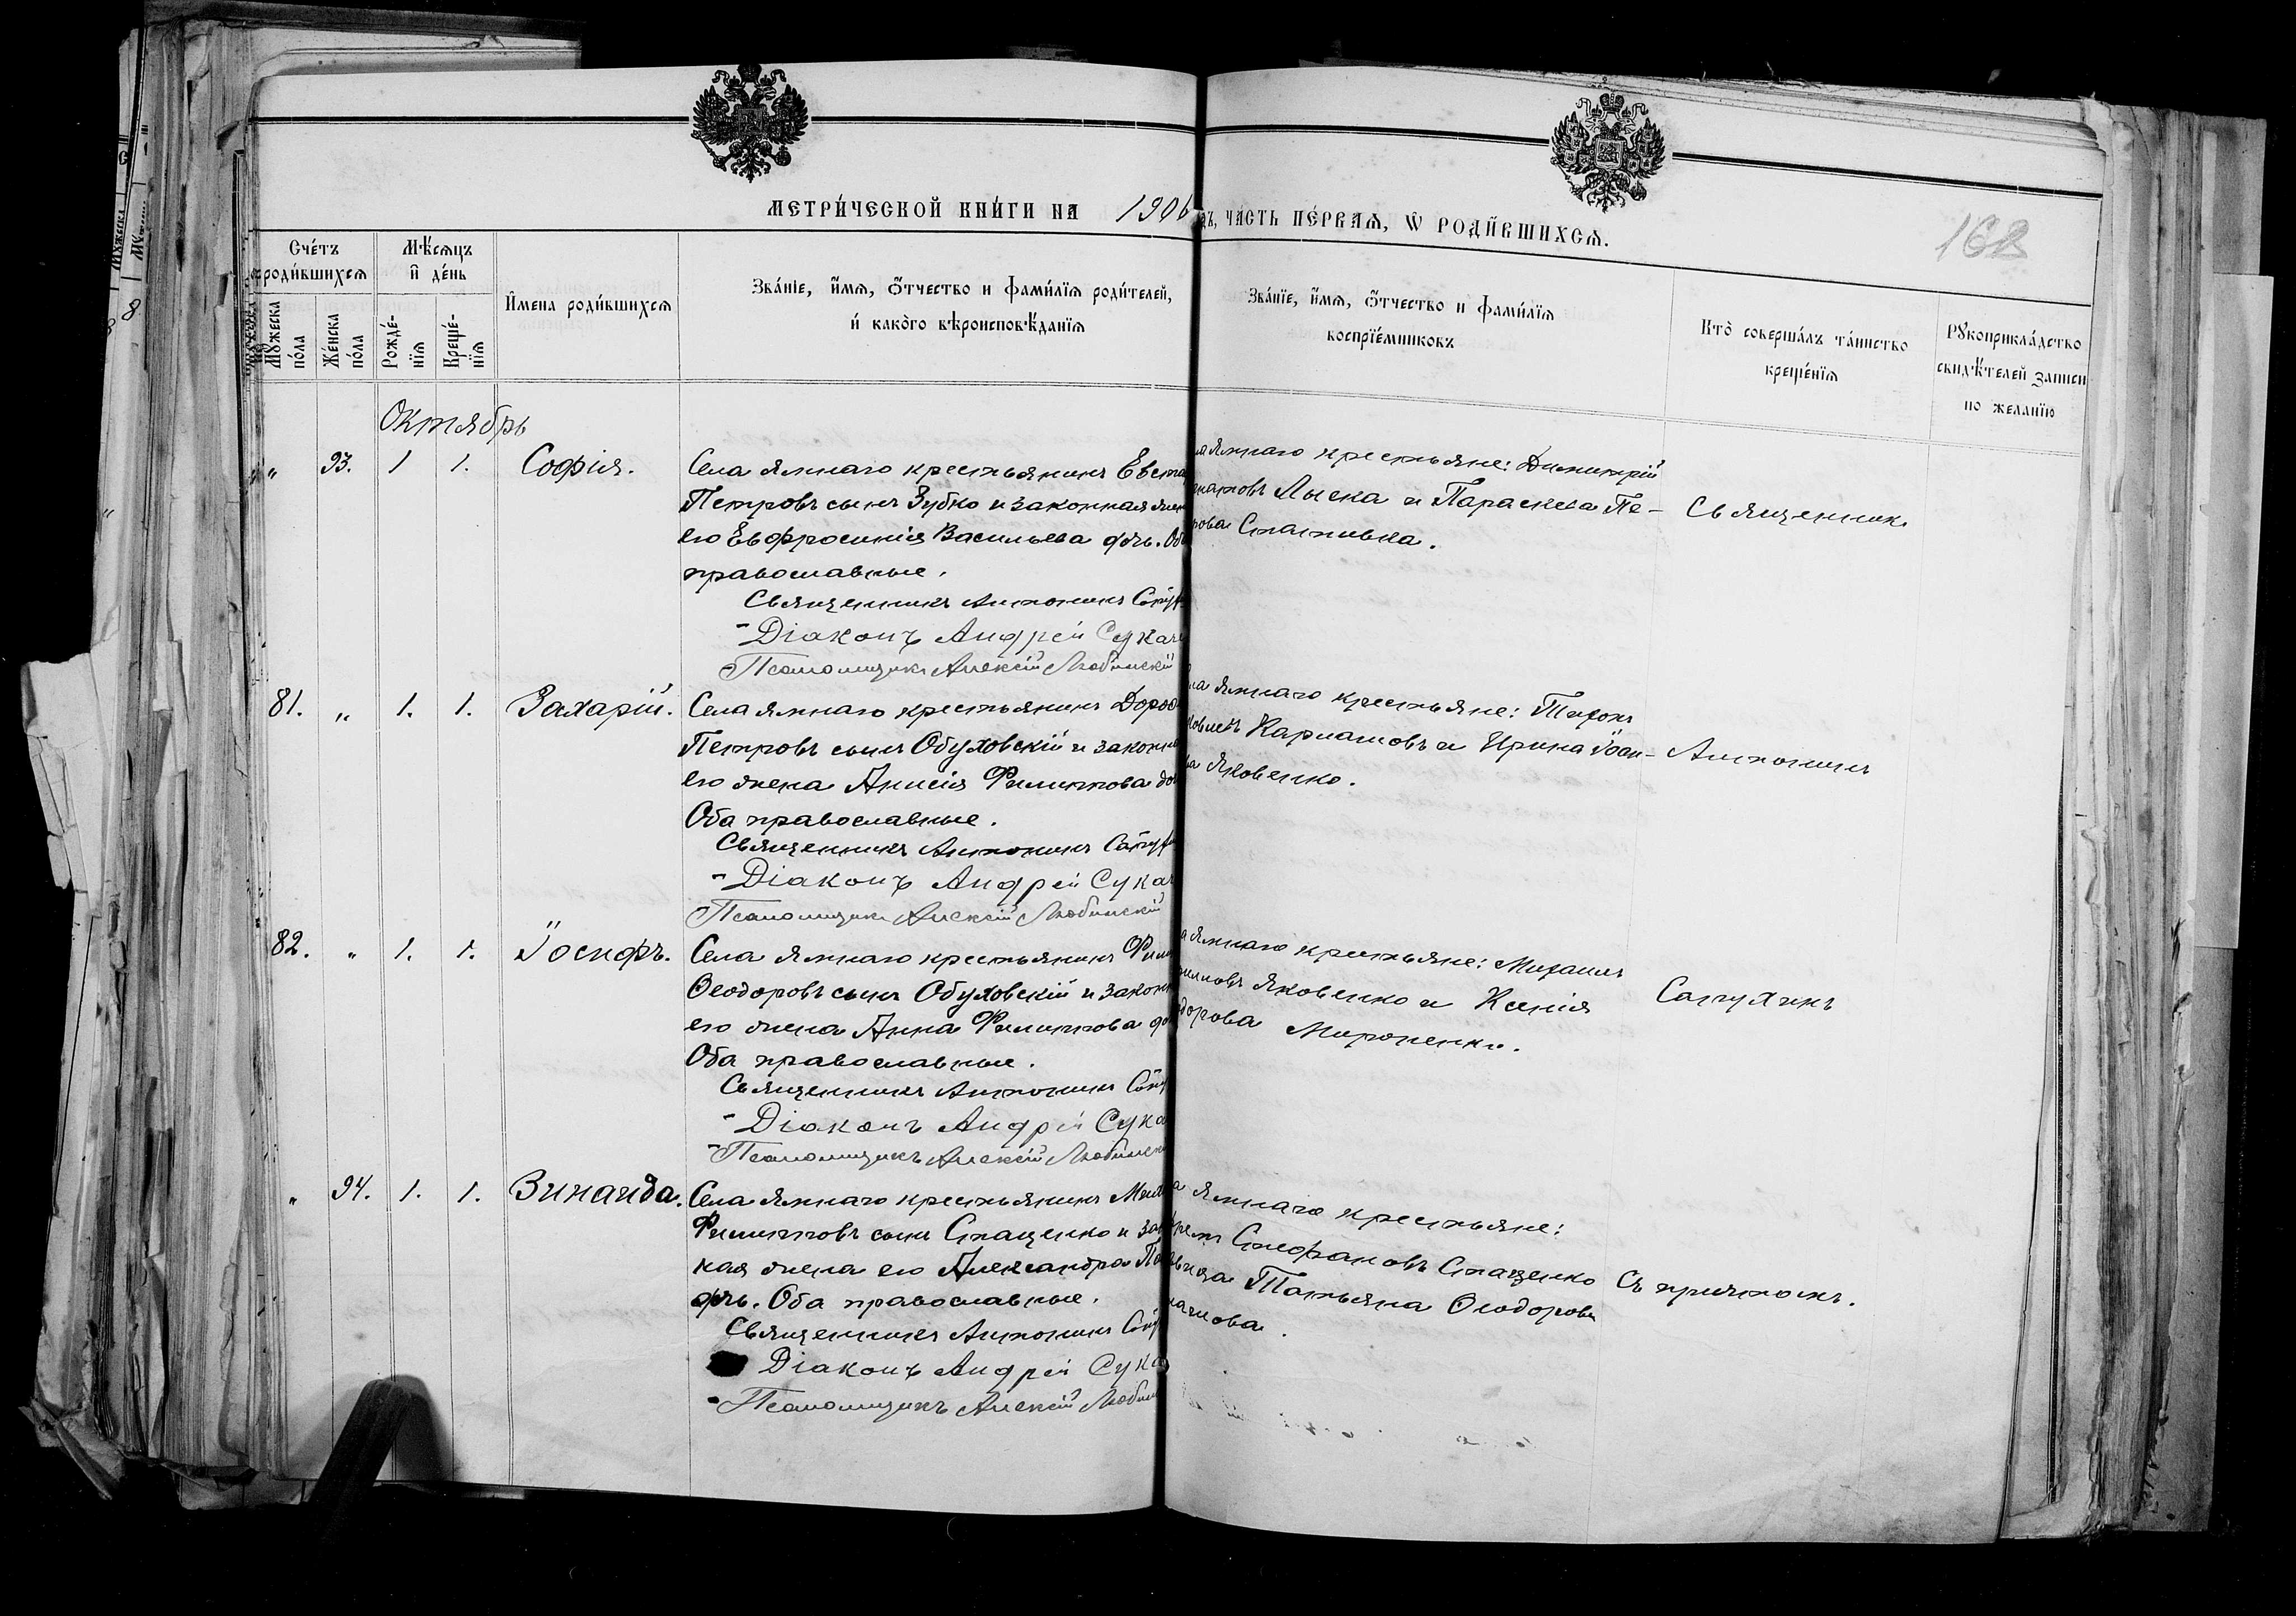 МЕТРИ́ЧЕСКОЙ КНИ́ГИ НА 1906
ЧАСТЬ ПЕ́РВАЯ, Ѡ РОДИ́ВШИХСЯ.
168
Сче́тъ роди́вшихся
Мѣ́сяцъ и де́нь
И́мена роди́вшихся
Зва́нїе, и́мя, о́тчество и фами́лїя роди́телей,
и како́го вѣроисповѣ́данїя
Зва́нїе, и́мя, о́тчество и фами́лїя
воспрїе́мниковъ
Кто̀ соверша́лъ та́инство
креще́нїя
Рꙋкоприкла́дство
свидѣ́телей записи
по жела́нїю
Мꙋ́жеска по́ла
Же́нска по́ла
Рожде́нїя
Креще́нїя
Октябрь
" 93. 1 1. Софія.
Села Ямнаго крестьянинъ
Петровъ сынъ Зубко и законная
его Евфросинія Васильева дочь.
православные.
Священникъ Антонинъ
Діаконъ Андрей
Псаломщикъ Алексій Любинскій
Ямнаго крестьяне: Димитрій
Лыска и Параскева Пе-
Статывка.
Священник
81. " 1. 1. Захарій.
Села Ямнаго крестьянинъ
Петровъ сынъ Обуховскій и
его жена Анисія Филиппова
Оба православные.
Священникъ Антонинъ
Діаконъ Андрей
Псаломщикъ Алексій Любинскій
Ямнаго крестьяне: Тихон
Карнаховъ и Ирина Іоан-
Яковенко.
Антонинъ
82. " 1. 1. Іосифъ.
Села Ямнаго крестьянинъ
Ѳеодоровъ сынъ Обуховскій и
его жена Анна Филиппова
Оба православные.
Священникъ Антонинъ
Діаконъ Андрей
Псаломщикъ Алексій
Ямнаго крестьяне: Михаилъ
Яковенко и Ксенія
Мироненко.
Сапухинъ
" 94. 1. 1. Зинаида.
Села Ямнаго крестьянинъ
Филипповъ сынъ Стаценко и
ная жена его Александра
дчь. Оба православные.
Священникъ Антонинъ
Діаконъ Андрей
Псаломщикъ Алексій
Ямнаго крестьяне:
Стефановъ Стаценко
Татьяна Ѳеодоров
Съ причтомъ.